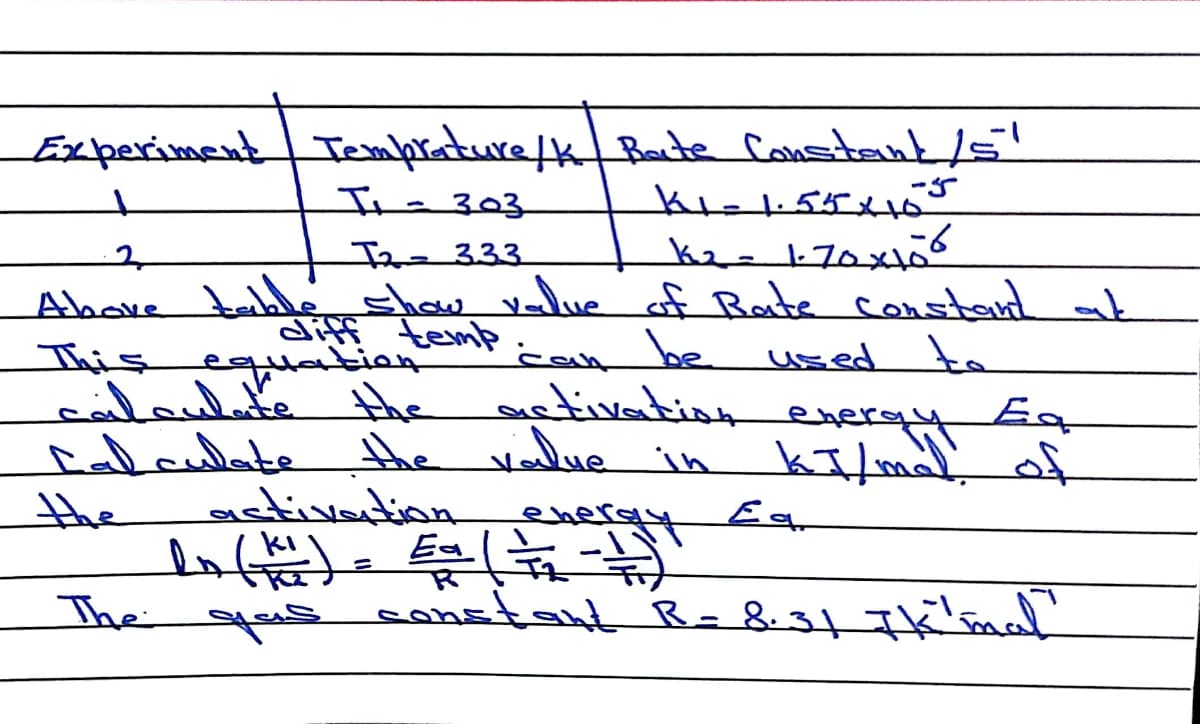 Experiment | Temprature/K | Rate Constant /S⁻¹
1 T₁ = 303 K1 = 1.55×10⁻⁵
2 T2 = 333 K2 = 1.70×10⁻⁶
Above table show value of Rate constant at
diff temp
This equation can be used to
calculate the activation energy Ea
Calculate the value in kJ/mol. of
the activation energy Ea.
ln (K1/K2) = Ea/R (1/T2 - 1/T1)
The gas constant R = 8.31 JK⁻¹mol⁻¹